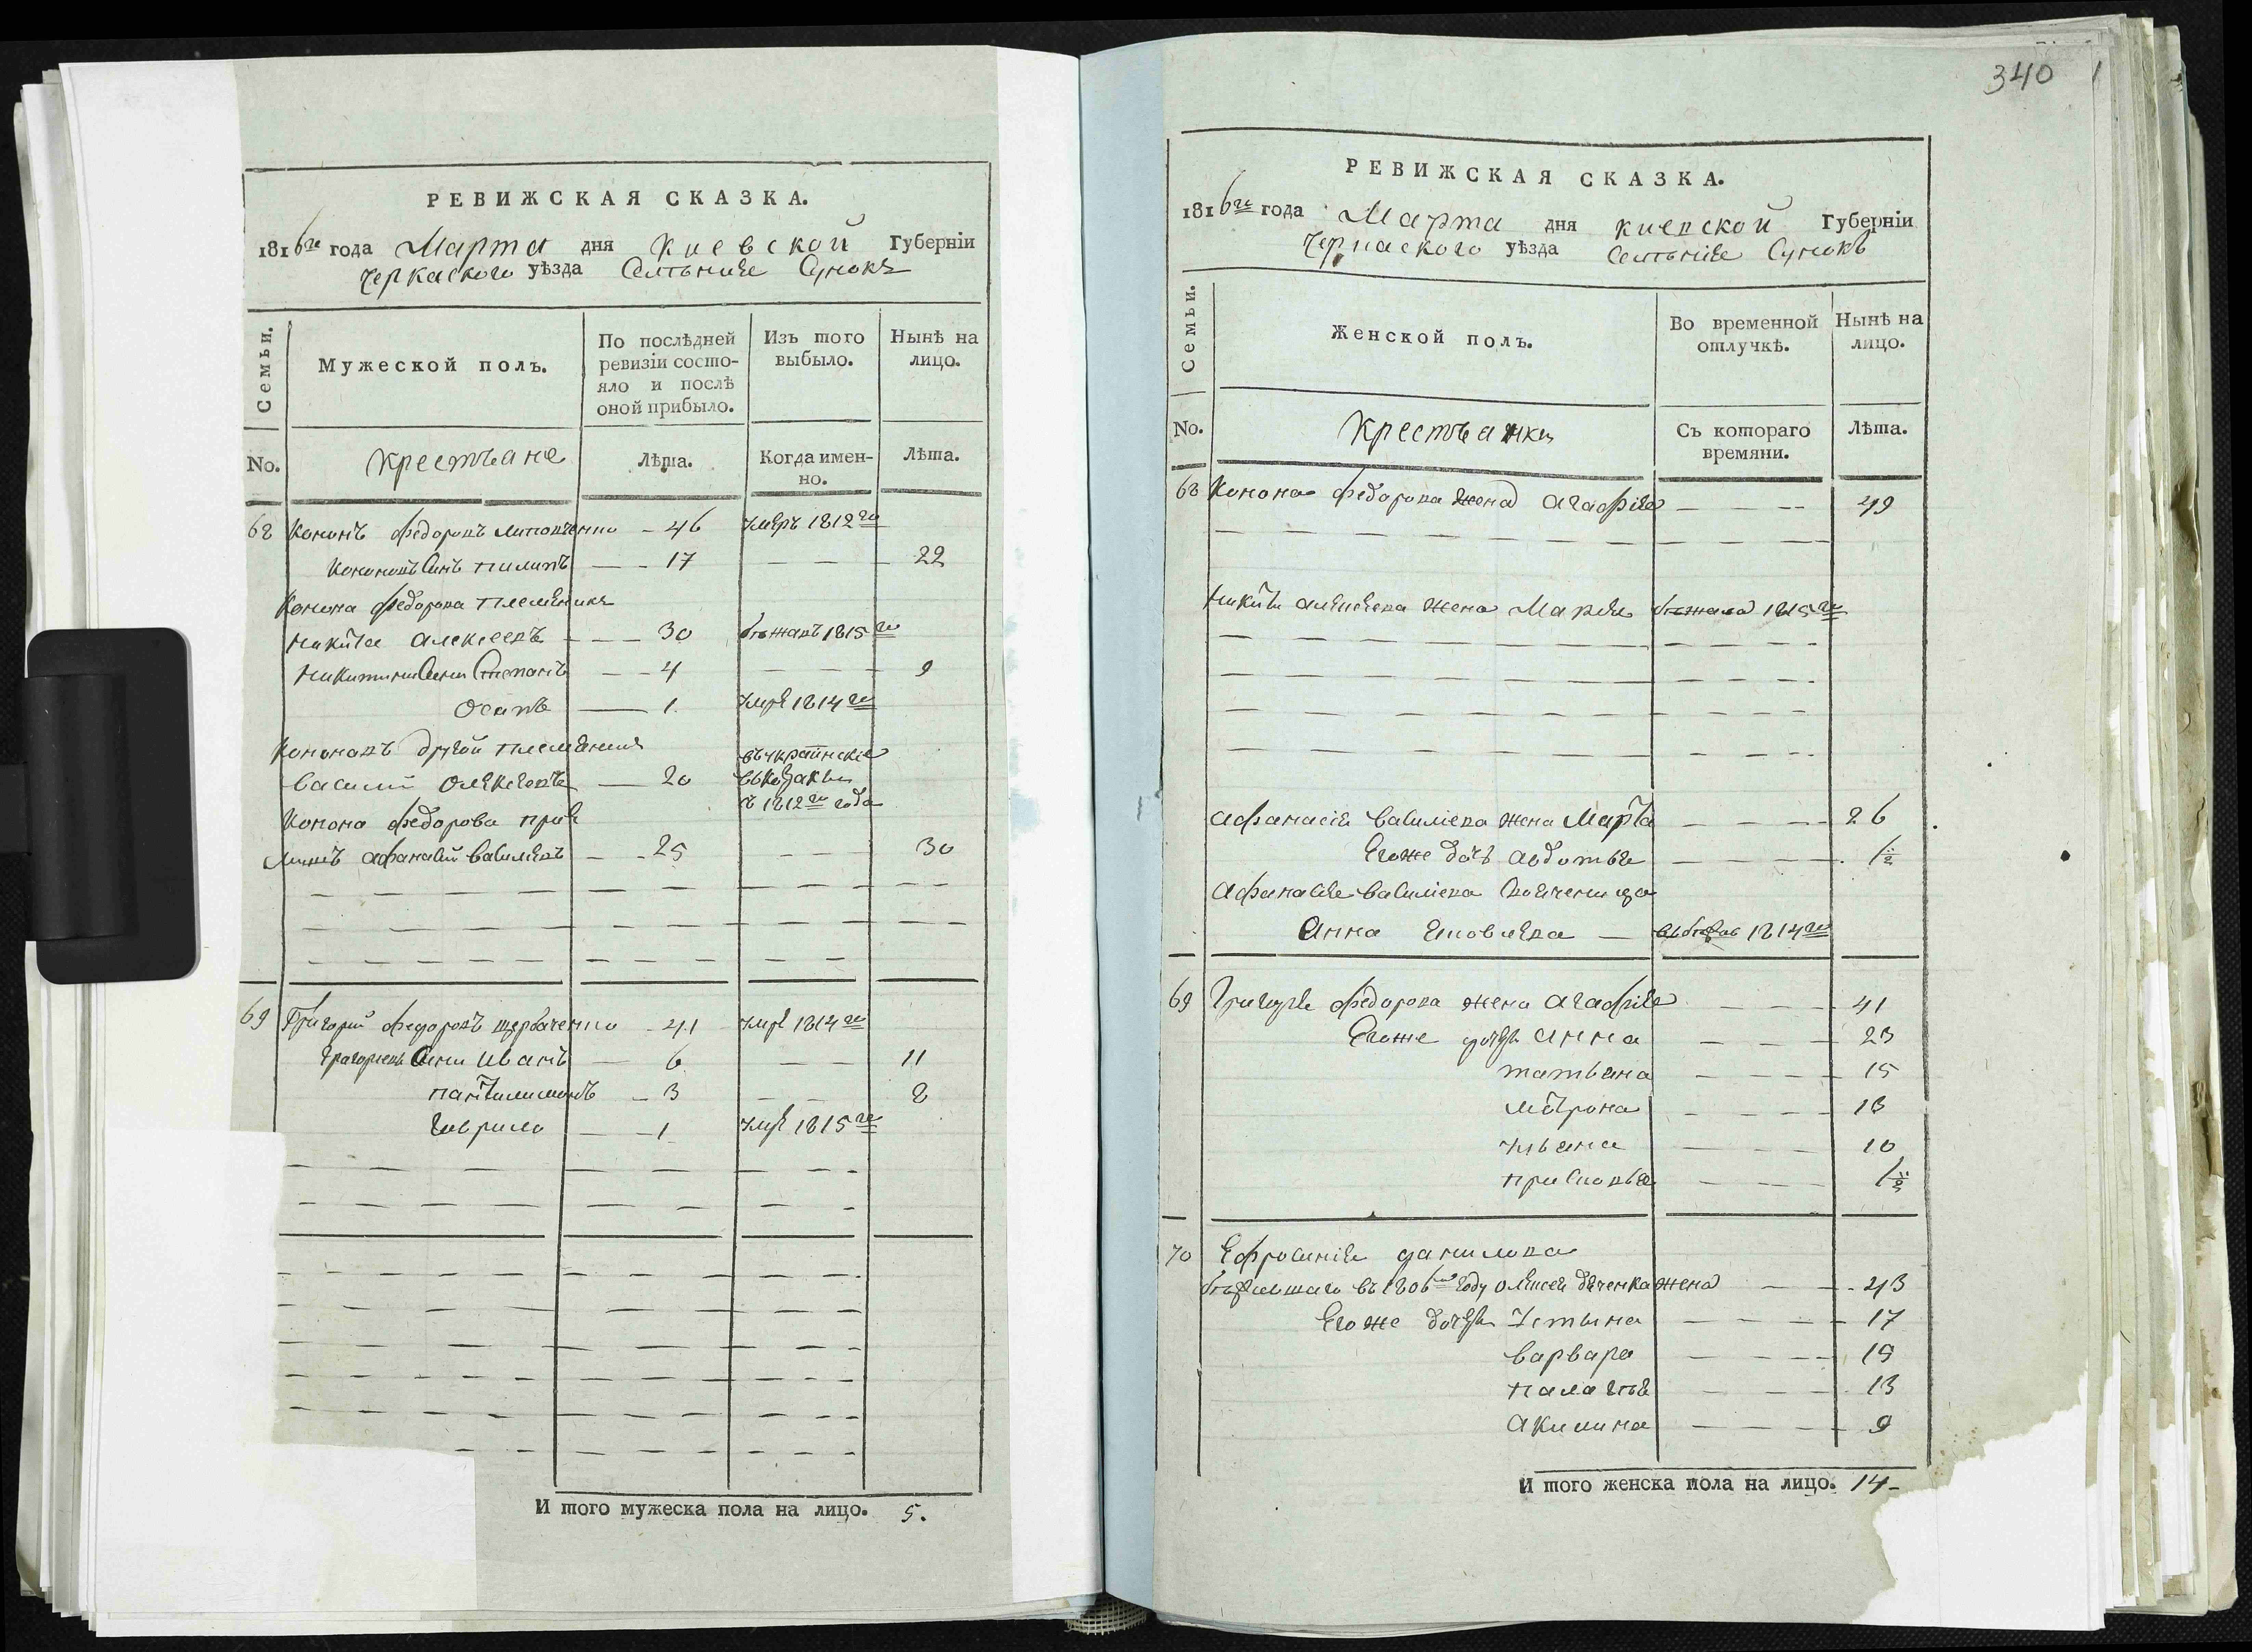 340
РЕВИЖСКАЯ СКАЗКА.
1816го года Марта дня Киевской Губерніи
Черкаского уѣзда Селѣнія Сунокъ
Семьи.
Мужеской полъ.
По послѣдней ревизіи состо-
яло и послѣ
оной прибыло.
Изъ того
выбыло.
Нынѣ на
лицо.
No.
Крестьяне
Лѣта.
Когда имен-
но.
Лѣта.
68 Кононъ Федоровъ Литовченко — 46 умеръ 1812го
Кононовъ Синъ пилипъ — — 17 — — — 22
Конона Федорова племѣникъ
Никита Алексеевъ — — — 30 бѣжалъ 1815го
Никитини Сини Степанъ — — 4 — — — 9
Осипъ — 1 умре 1814го
Кононовъ другой племѣникъ
Василий Олексѣевъ — 20 въ украинские
въ козаки
в 1812го года
Конона Федорова прие
мишъ Афанасий Василѣвъ — — 25 — — 30
69 Григорий Федоровъ щербаченко — 41 умре 1814го
Григориевы Сини Иванъ — 6 — — 11
пантилимонъ — 3 — — 8
Гаврило — — 1 умре 1815го
И того мужеска пола на лицо. 5.
РЕВИЖСКАЯ СКАЗКА.
1816го года Марта дня киевской Губерніи
Черкаского уѣзда Селѣнiя Сунокъ
Семьи.
Женской полъ.
Во временной
отлучкѣ.
Нынѣ на
лицо.
No.
Крестьянки
Съ котораго
времяни.
Лѣта.
68 Конона Федорова жена Агафия — — — 49
Никити Алексѣева жена Мария бѣжала 1815го
Афанасія Василіева жена Марта — — — — 26
Егоже дочь Авдотья — — — — 1/2
Афанасія Василіева
Анна — 1814го
69 Григория Федорова жена Агафия — — — 41
Егоже дочери Анна — — — 23
татьяна — — — — 15
мотрона — — — — 13
ульяна — — — 10
присковья — — — 1/2
70 Ефросинія данилова
въ 1806мъ году жена — — 43
Егоже дочери Устина — — — — 17
варвара — — — — 15
палагѣя — — — 13
Акилина — — — — 9
И того женска пола на лицо. 14-